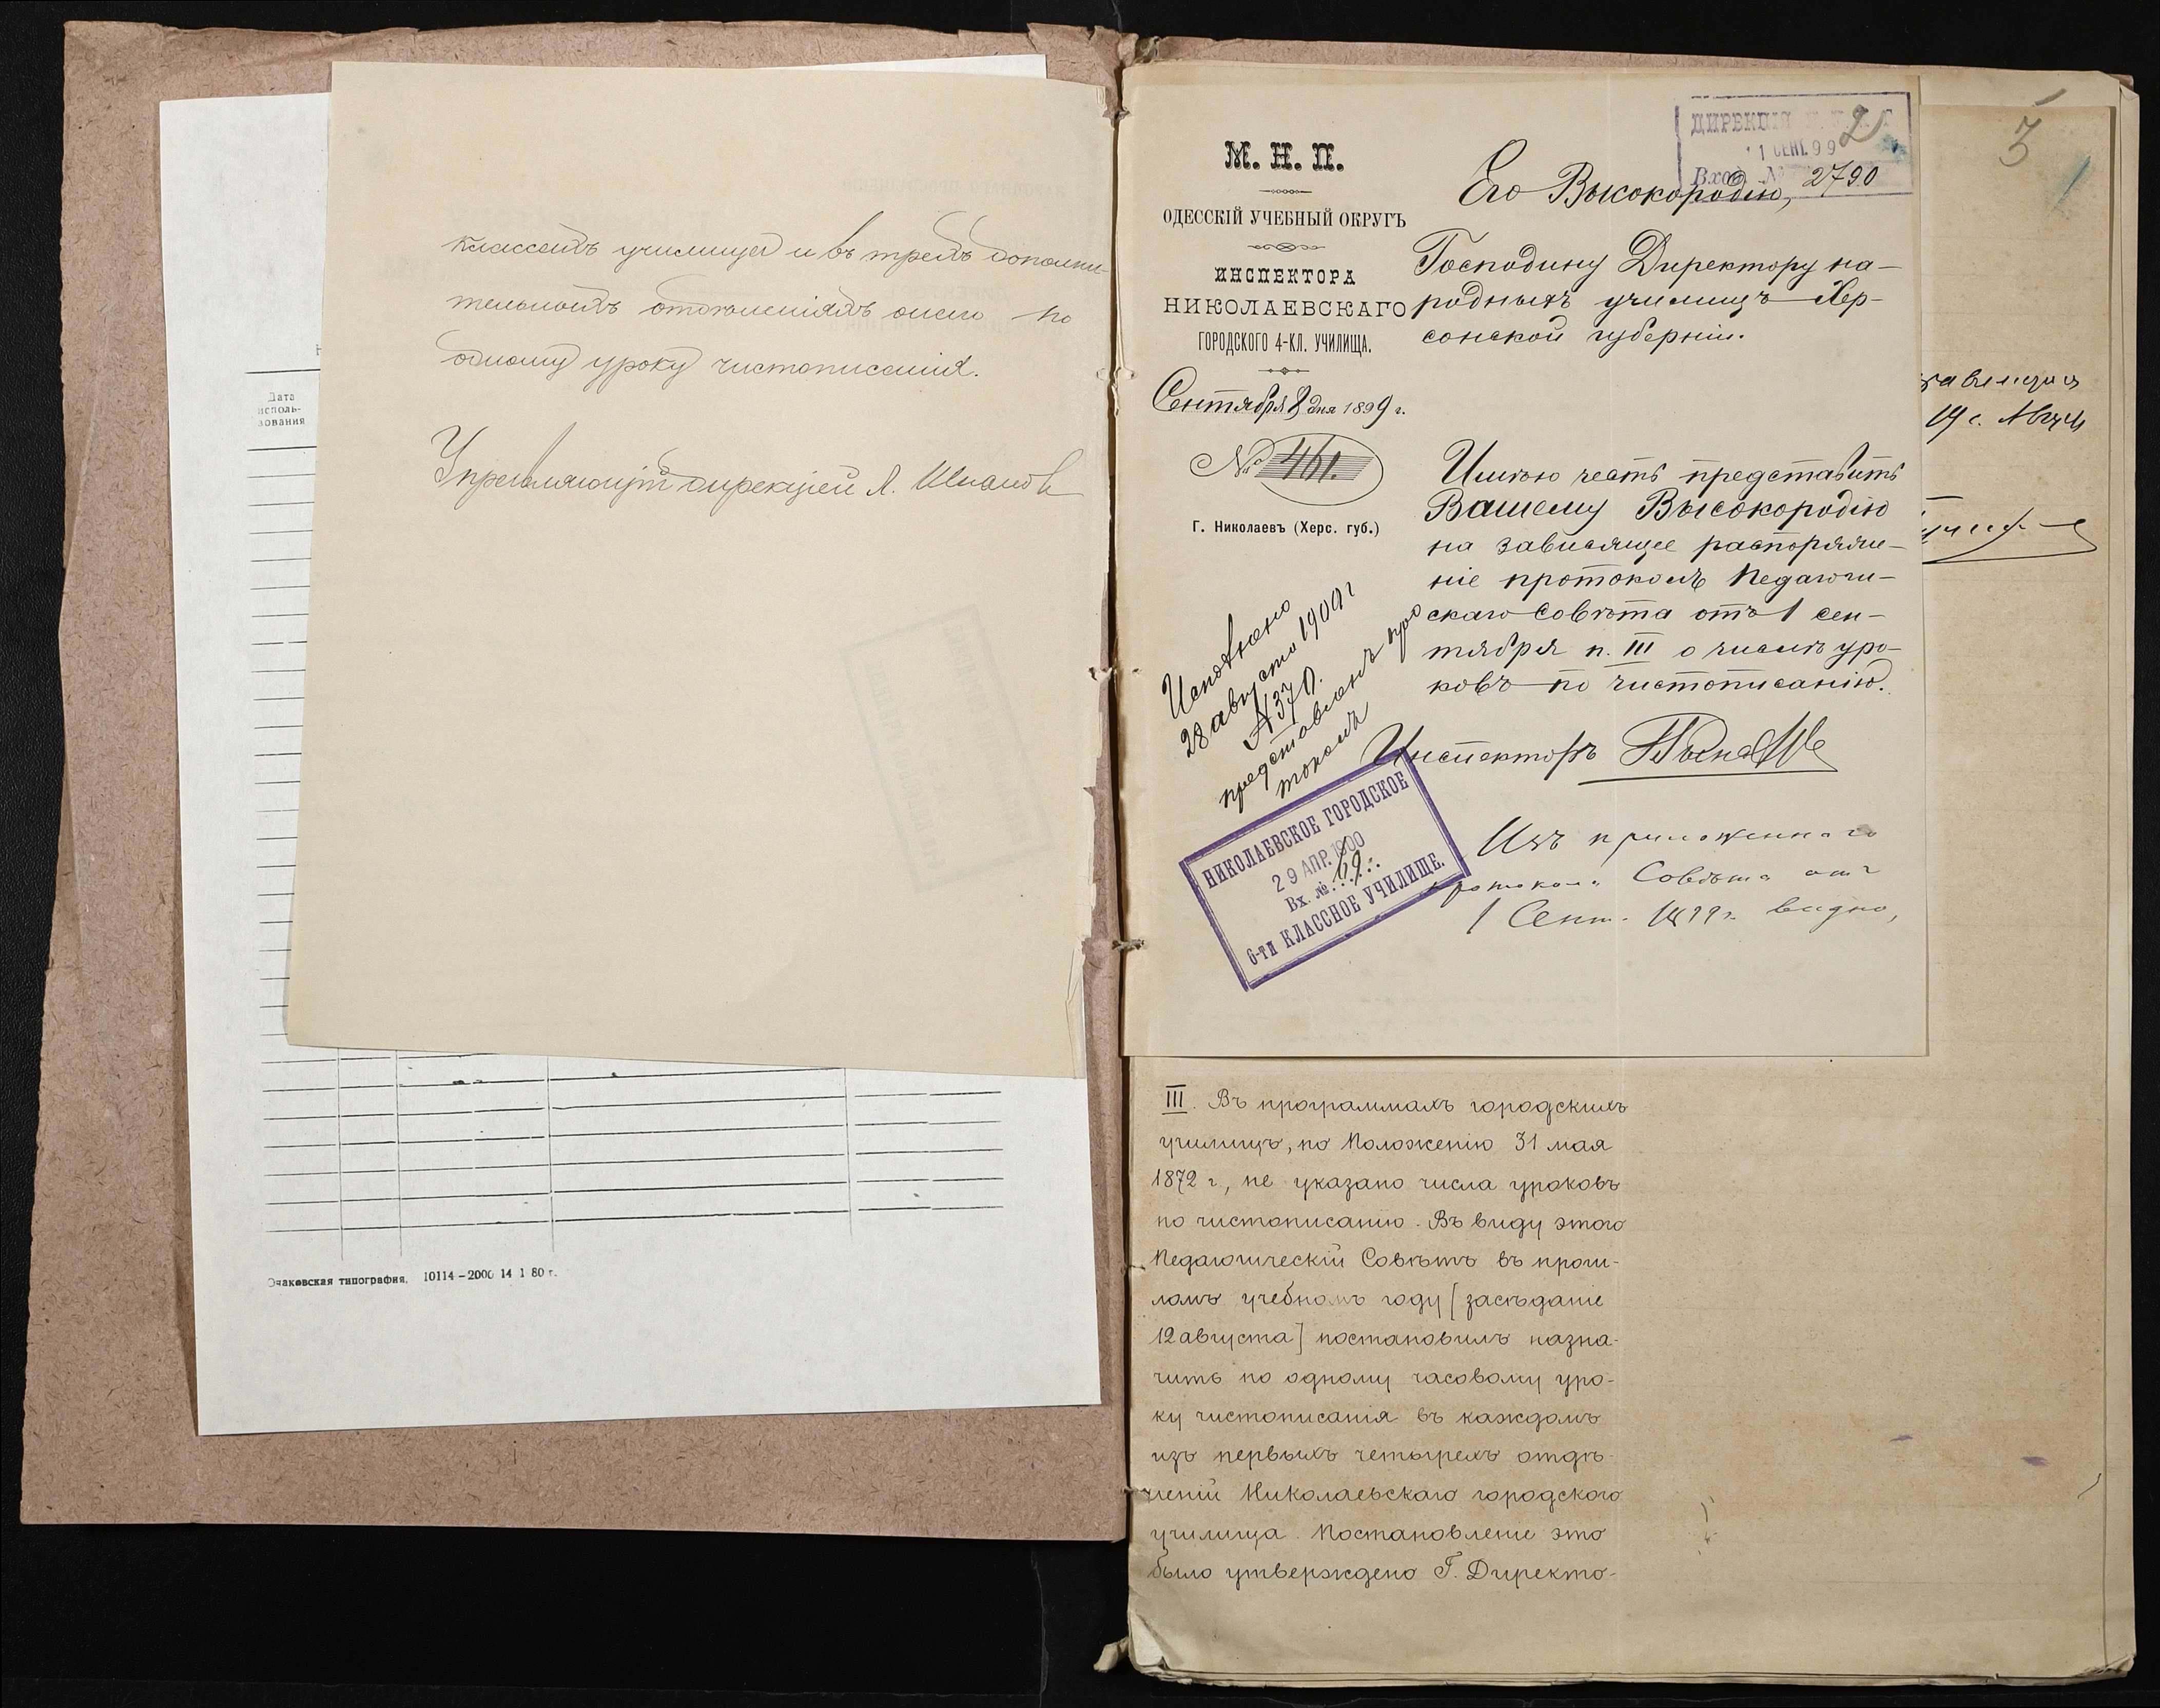 классахъ училища и въ трехъ дополни-
тельныхъ отдѣленіяхъ онаго по
одному уроку чистописанія.
Управляющій дирекціей А.
Дата
исполь-
зования
Очаковская типография. 10114-2000 14 1 80 г.
М. Н. П.
ОДЕССКІЙ УЧЕБНЫЙ ОКРУГЪ
ИНСПЕКТОРА
НИКОЛАЕВСКАГО
ГОРОДСКОГО 4-КЛ. УЧИЛИЩА.
Сентября 8 дня 1899 г.
№ 461.
Г. Николаевъ (Херс. губ.)
ДИРЕКЦІЯ
1 СЕНТ. 99
Вход. № 2790
2
Его Высокородію,
Господину Директору на-
родныхъ училищъ Хер-
сонской губерніи.
Имѣю честь представить
Вашему Высокородію
на зависящее распоряже-
ніе протоколъ Педагоги-
скаго Совѣта отъ 1 сен-
тября п. III о числѣ уро-
ковъ по чистописанію.
Инспекторъ
Исполнено
28 августа 1900 г
№ 370.
представленъ про
токолъ
НИКОЛАЕВСКОЕ ГОРОДСКОЕ
29 АПР. 1900
Вх. № 69.
6-ти КЛАССНОЕ УЧИЛИЩЕ.
Изъ приложеннаго
протокола Совѣта отъ
1 Сент. 1899 г. видно,
3
19 с. Авгу
III. Въ программахъ городскихъ
училищъ, по Положенію 31 мая
1872 г, не указано числа уроковъ
по чистописанію. Въ виду этого
Педагогическій Совѣтъ въ прош-
ломъ учебномъ году [засѣданіе
12 августа] постановилъ назна-
чить по одному часовому уро-
ку чистописанія въ каждомъ
изъ первыхъ четырехъ отдѣ-
леній Николаевскаго городского
училища. Постановленіе это
было утверждено Г. Директо-